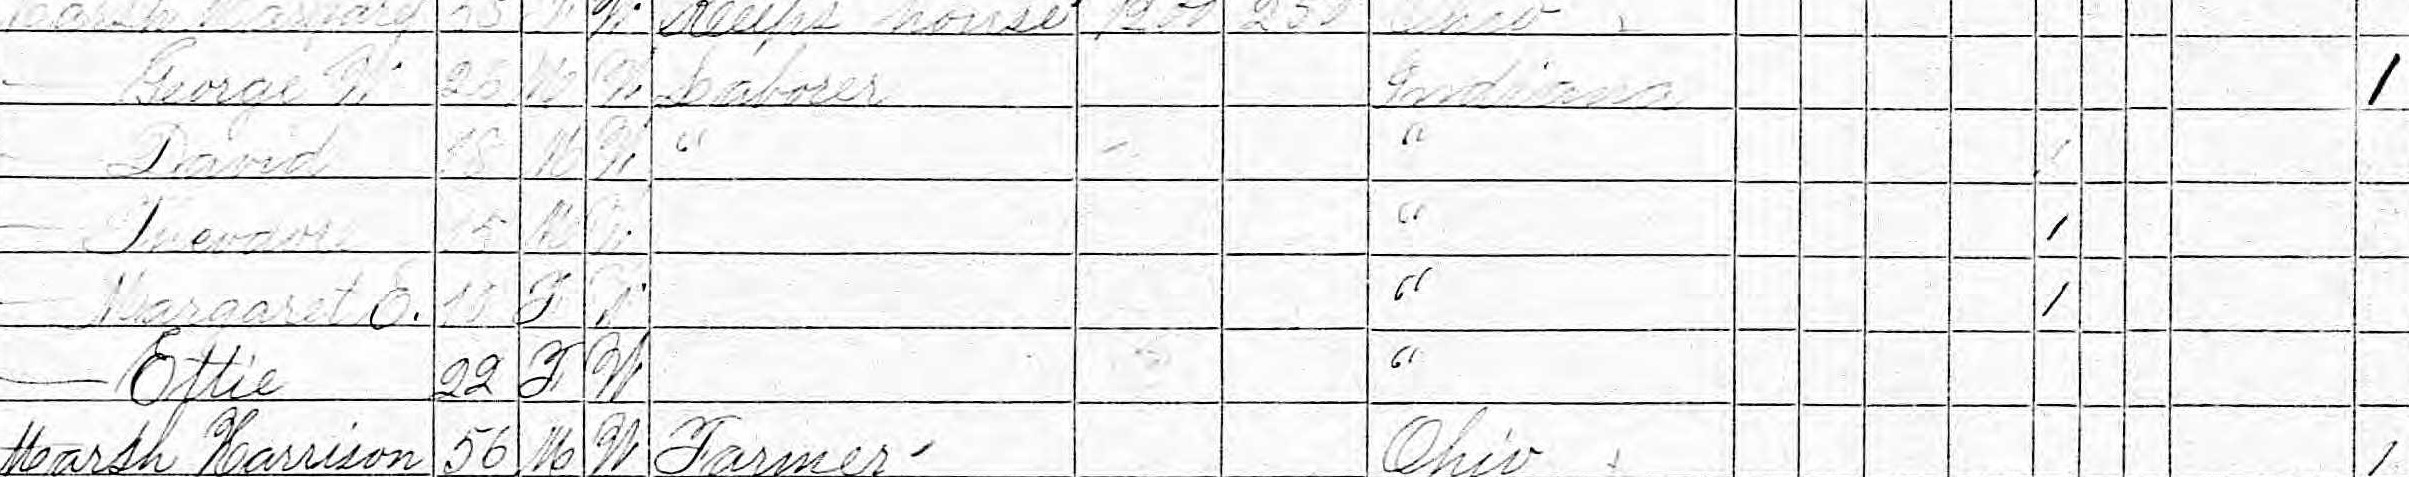 Marsh Margaret 55 F W Keeps house 1200 250 Ohio
— George W 25 M W Laborer Indiana 1
— David 18 M W " " 1
— Theodore 15 M W " 1
— Margaret E. 10 F W " 1
— Effie 22 F W "
Marsh Harrison 56 M W Farmer Ohio 1